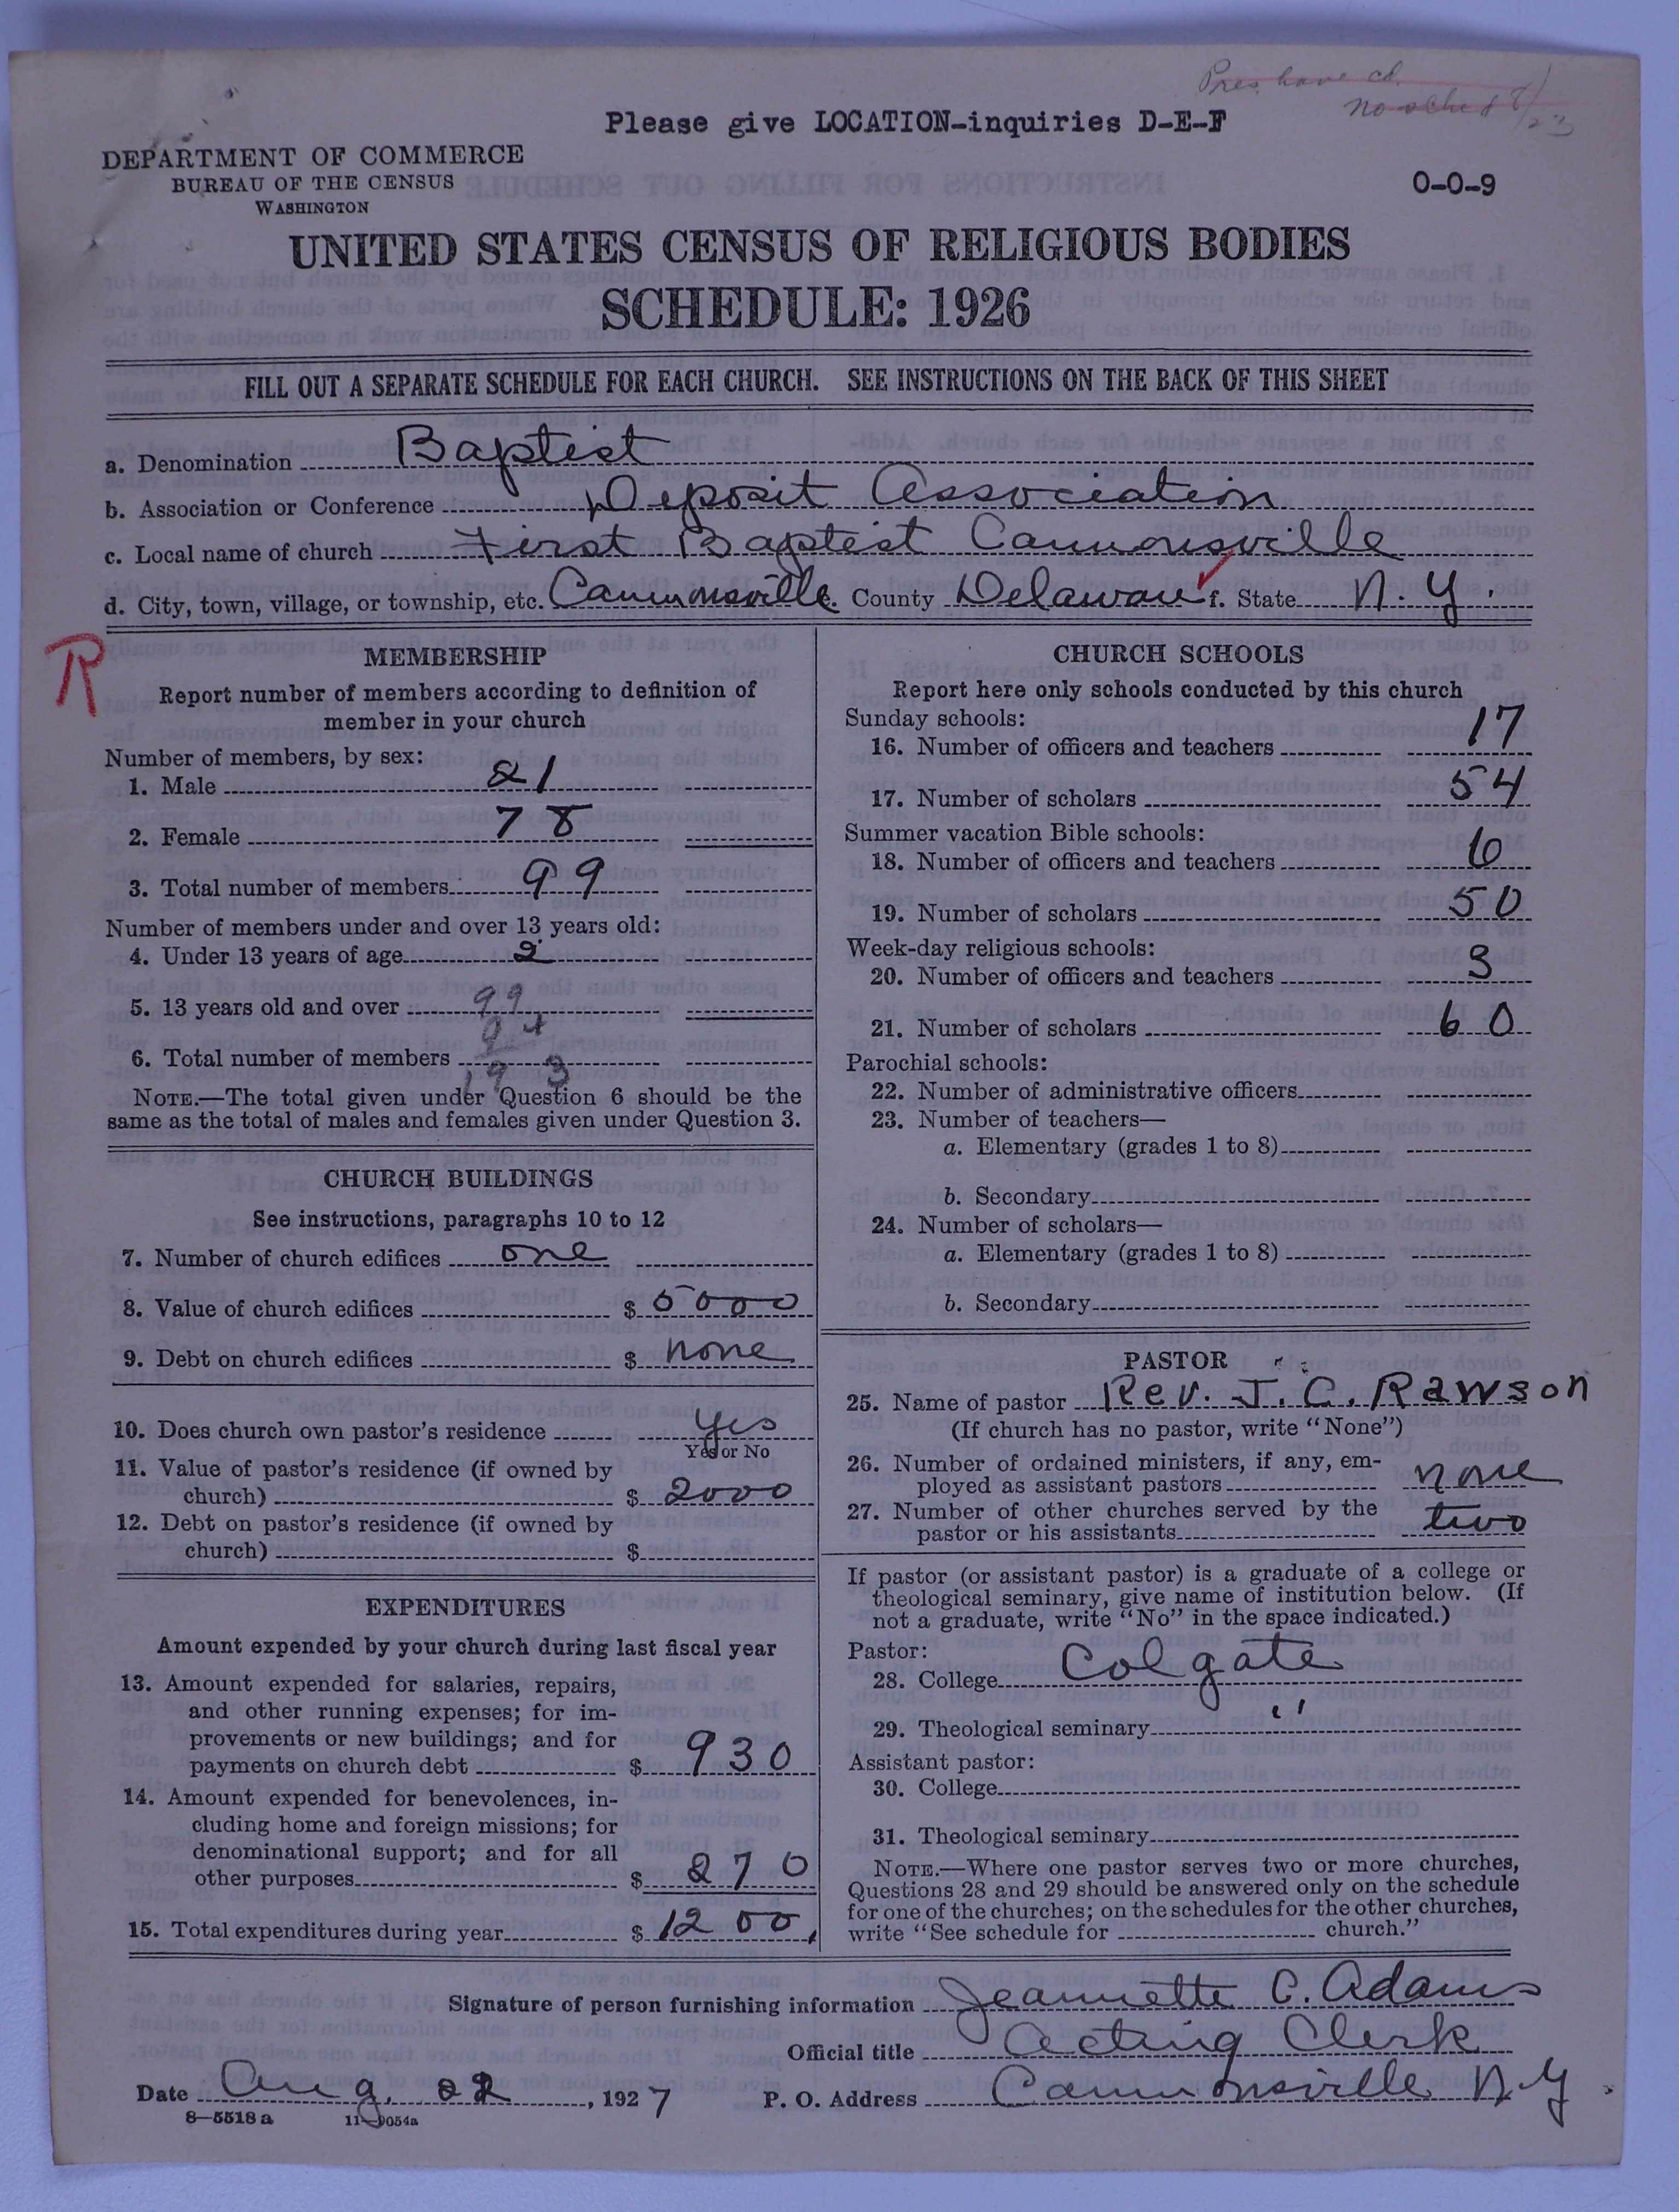 Pres. have cd.
no sched 8/23
Please give LOCATION-inquiries D-E-F
DEPARTMENT OF COMMERCE
BUREAU OF THE CENSUS
WASHINGTON
0-0-9
UNITED STATES CENSUS OF RELIGIOUS BODIES
SCHEDULE: 1926
FILL OUT A SEPARATE SCHEDULE FOR EACH CHURCH. SEE INSTRUCTIONS ON THE BACK OF THIS SHEET
a. Denomination Baptist
b. Association or Conference Deposit Association
c. Local name of church First Baptist Cannonsville
d. City, town, village, or township, etc. Cannonsville e. County Delaware f. State N.Y.
R
MEMBERSHIP
Report number of members according to definition of
member in your church
Number of members, by sex:
1. Male 21
2. Female 78
3. Total number of members 99
Number of members under and over 13 years old:
4. Under 13 years of age 2
5. 13 years old and over 99
94
6. Total number of members 193
NOTE.—The total given under Question 6 should be the
same as the total of males and females given under Question 3.
CHURCH BUILDINGS
See instructions, paragraphs 10 to 12
7. Number of church edifices one
8. Value of church edifices $ 5000
9. Debt on church edifices $ none
10. Does church own pastor's residence yes
Yes or No
11. Value of pastor's residence (if owned by
church) $ 2000
12. Debt on pastor's residence (if owned by
church) $
EXPENDITURES
Amount expended by your church during last fiscal year
13. Amount expended for salaries, repairs,
and other running expenses; for im-
provements or new buildings; and for
payments on church debt $ 930
14. Amount expended for benevolences, in-
cluding home and foreign missions; for
denominational support; and for all
other purposes $ 270
15. Total expenditures during year $ 1200
CHURCH SCHOOLS
Report here only schools conducted by this church
Sunday schools:
16. Number of officers and teachers 17
17. Number of scholars 54
Summer vacation Bible schools:
18. Number of officers and teachers 6
19. Number of scholars 50
Week-day religious schools:
20. Number of officers and teachers 3
21. Number of scholars 60
Parochial schools:
22. Number of administrative officers
23. Number of teachers—
a. Elementary (grades 1 to 8)
b. Secondary
24. Number of scholars—
a. Elementary (grades 1 to 8)
b. Secondary
PASTOR
25. Name of pastor Rev. J. C. Rawson
(If church has no pastor, write "None")
26. Number of ordained ministers, if any, em-
ployed as assistant pastors none
27. Number of other churches served by the
pastor or his assistants two
If pastor (or assistant pastor) is a graduate of a college or
theological seminary, give name of institution below. (If
not a graduate, write "No" in the space indicated.)
Pastor:
28. College Colgate
29. Theological seminary "
Assistant pastor:
30. College
31. Theological seminary
NOTE.—Where one pastor serves two or more churches,
Questions 28 and 29 should be answered only on the schedule
for one of the churches; on the schedules for the other churches,
write "See schedule for church."
Signature of person furnishing information Jeannette C. Adams
Official title Acting Clerk
Date Aug. 22, 1927 P. O. Address Cannonsville N.Y.
8—5518 a 11—9054a